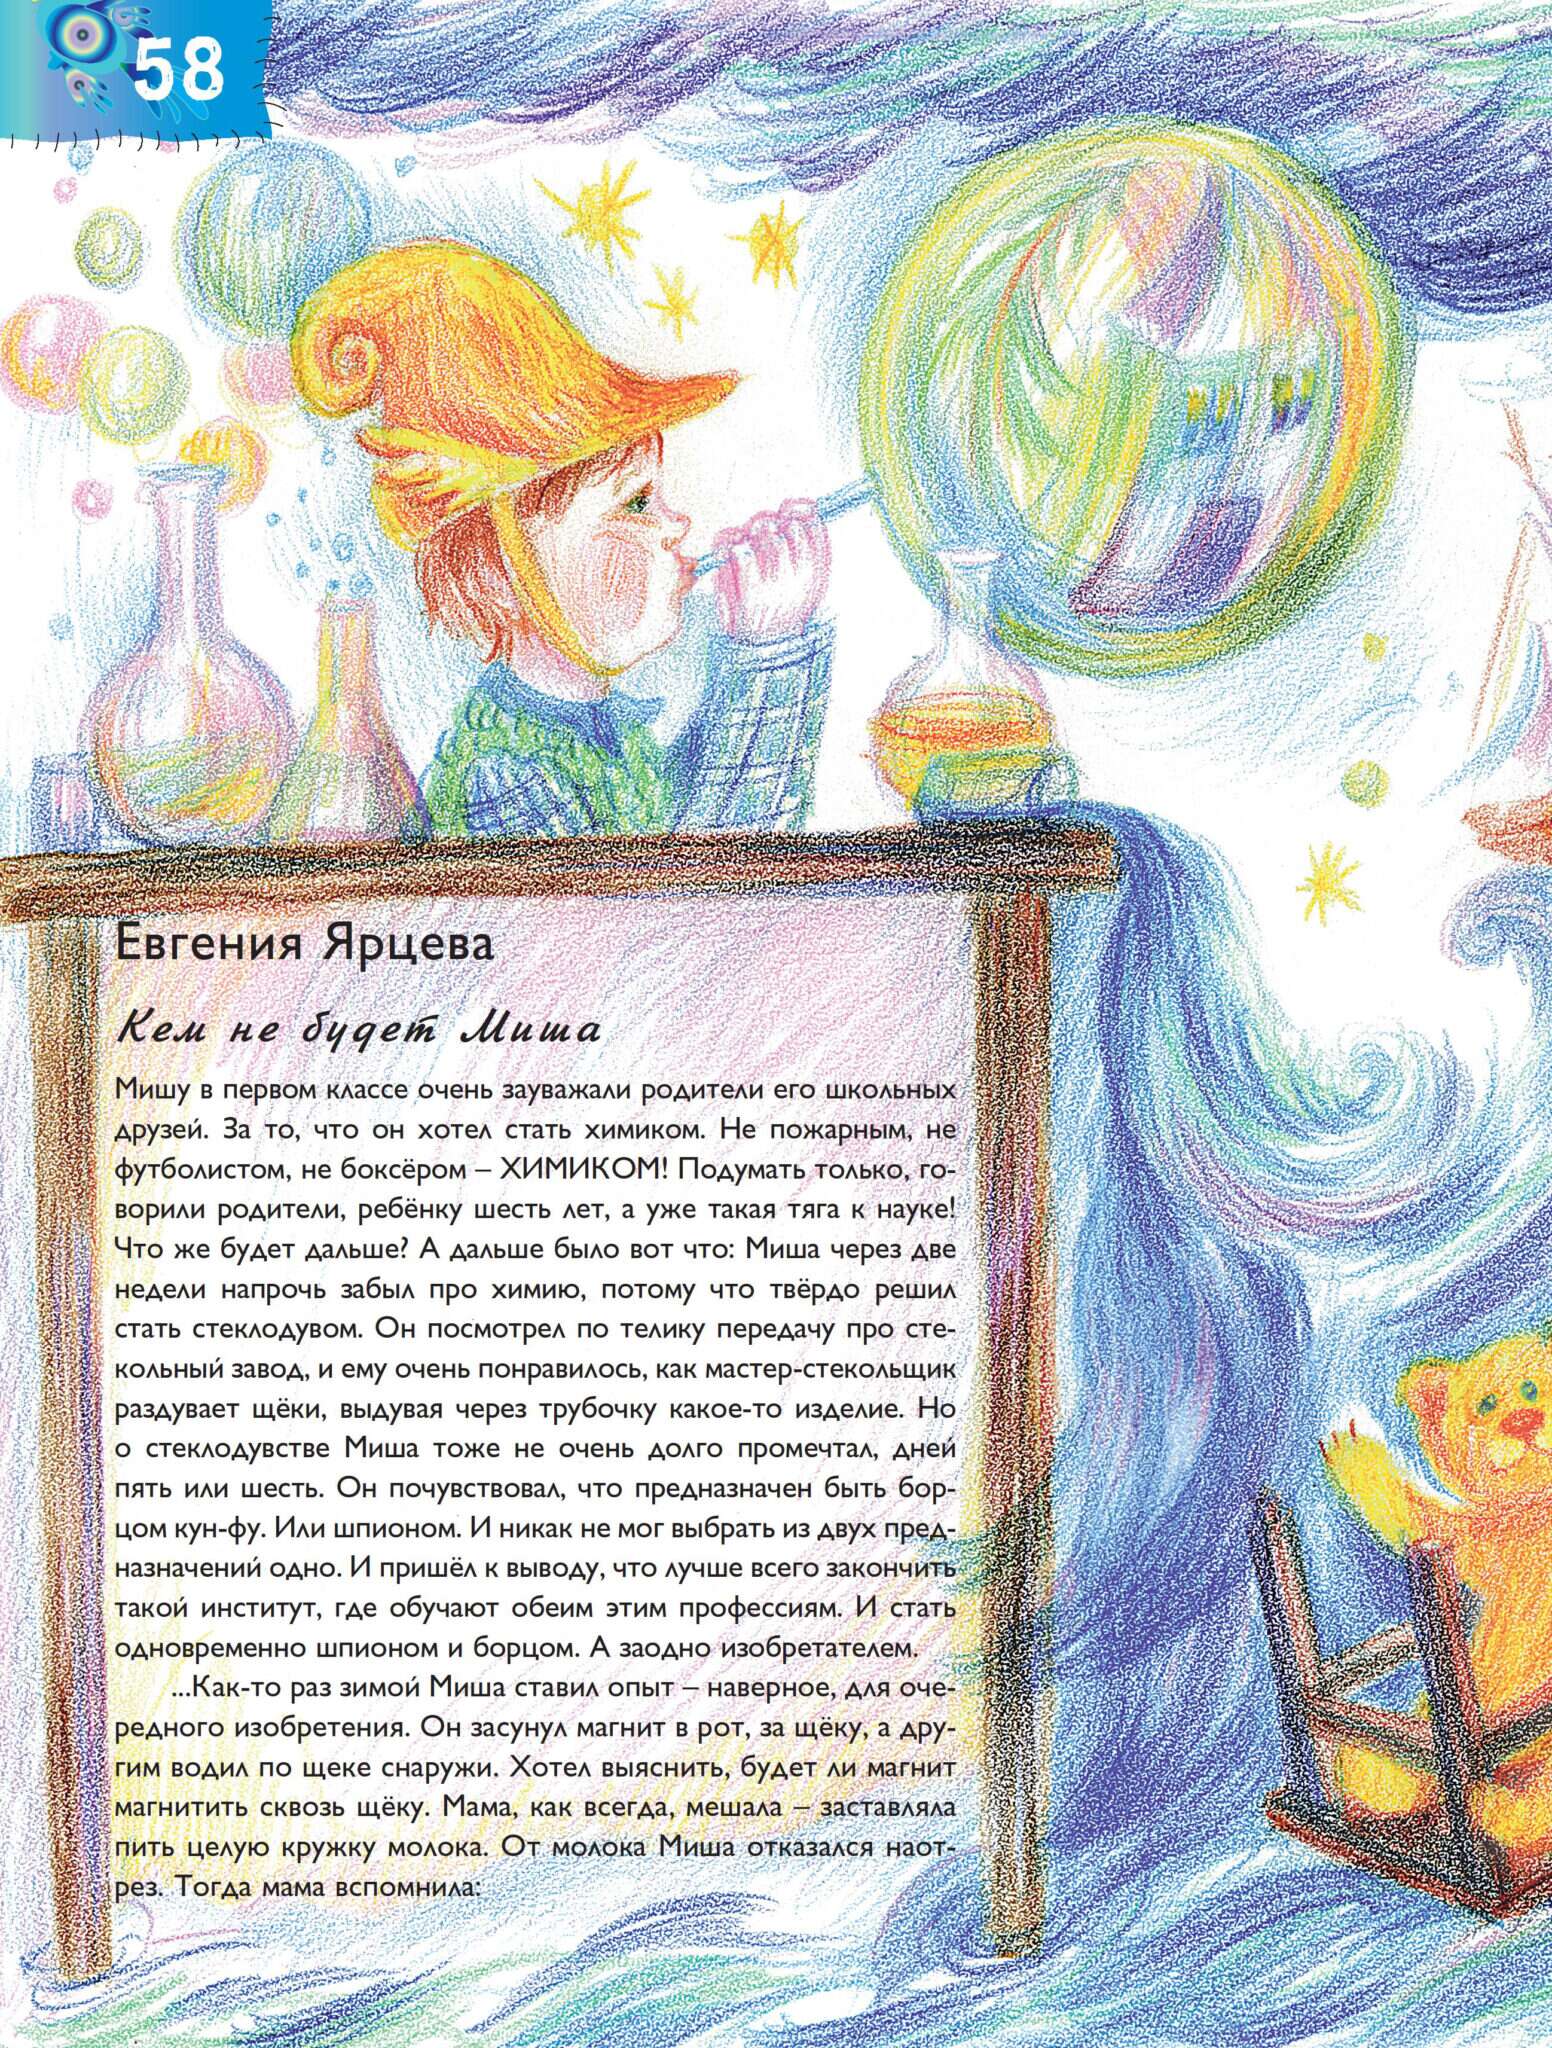 58
Евгения Ярцева
Кем не будет Миша
Мишу в первом классе очень зауважали родители его школьных
друзей. За то, что он хотел стать химиком. Не пожарным, не
футболистом, не боксёром – ХИМИКОМ! Подумать только, го-
ворили родители, ребёнку шесть лет, а уже такая тяга к науке!
Что же будет дальше? А дальше было вот что: Миша через две
недели напрочь забыл про химию, потому что твёрдо решил
стать стеклодувом. Он посмотрел по телику передачу про сте-
кольный завод, и ему очень понравилось, как мастер-стекольщик
раздувает щёки, выдувая через трубочку какое-то изделие. Но
о стеклодувстве Миша тоже не очень долго промечтал, дней
пять или шесть. Он почувствовал, что предназначен быть бор-
цом кун-фу. Или шпионом. И никак не мог выбрать из двух пред-
назначений одно. И пришёл к выводу, что лучше всего закончить
такой институт, где обучают обеим этим профессиям. И стать
одновременно шпионом и борцом. А заодно изобретателем.
...Как-то раз зимой Миша ставил опыт – наверное, для оче-
редного изобретения. Он засунул магнит в рот, за щёку, а дру-
гим водил по щеке снаружи. Хотел выяснить, будет ли магнит
магнитить сквозь щёку. Мама, как всегда, мешала – заставляла
пить целую кружку молока. От молока Миша отказался наот-
рез. Тогда мама вспомнила: